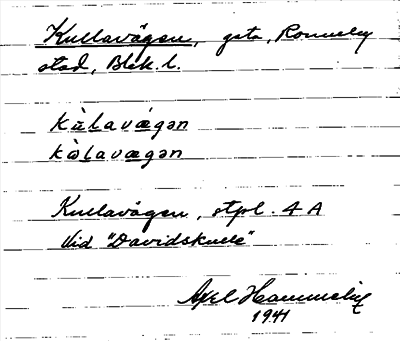 Kullavägen, gata, Ronneby
stad, Blek. l.
kùlavǽgən
kòlavægən
Kullavägen, stpl. 4 A
Vid "Davidskulle"
Axel Hammelin
1941